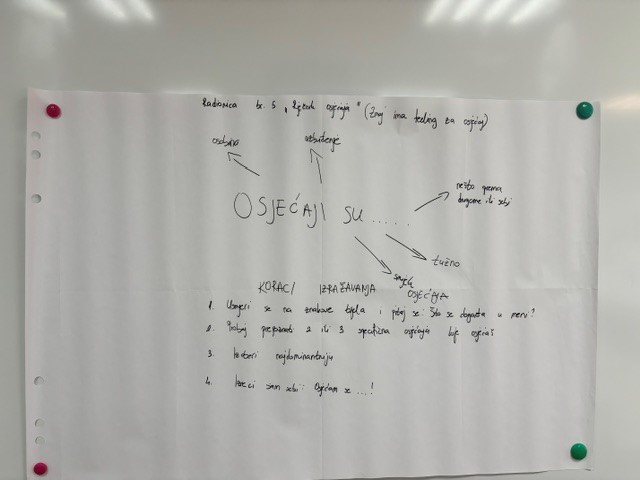 Radionica br. 5 „Rječnik osjećaja" (Znoj ima feeling za osjećaj)
osobno
uzbuđenje
OSJEĆAJI SU .....
nešto prema
drugome ili sebi
tužno
KORACI IZRAŽAVANJA OSJEĆAJA
1. Usmjeri se na znakove tijela i pitaj se: Što se događa u meni?
2. Probaj prepoznati 2 ili 3 specifična osjećaja koje osjećaš
3. Izaberi najdominantniju
4. Izreci sam sebi: Osjećam se ...!